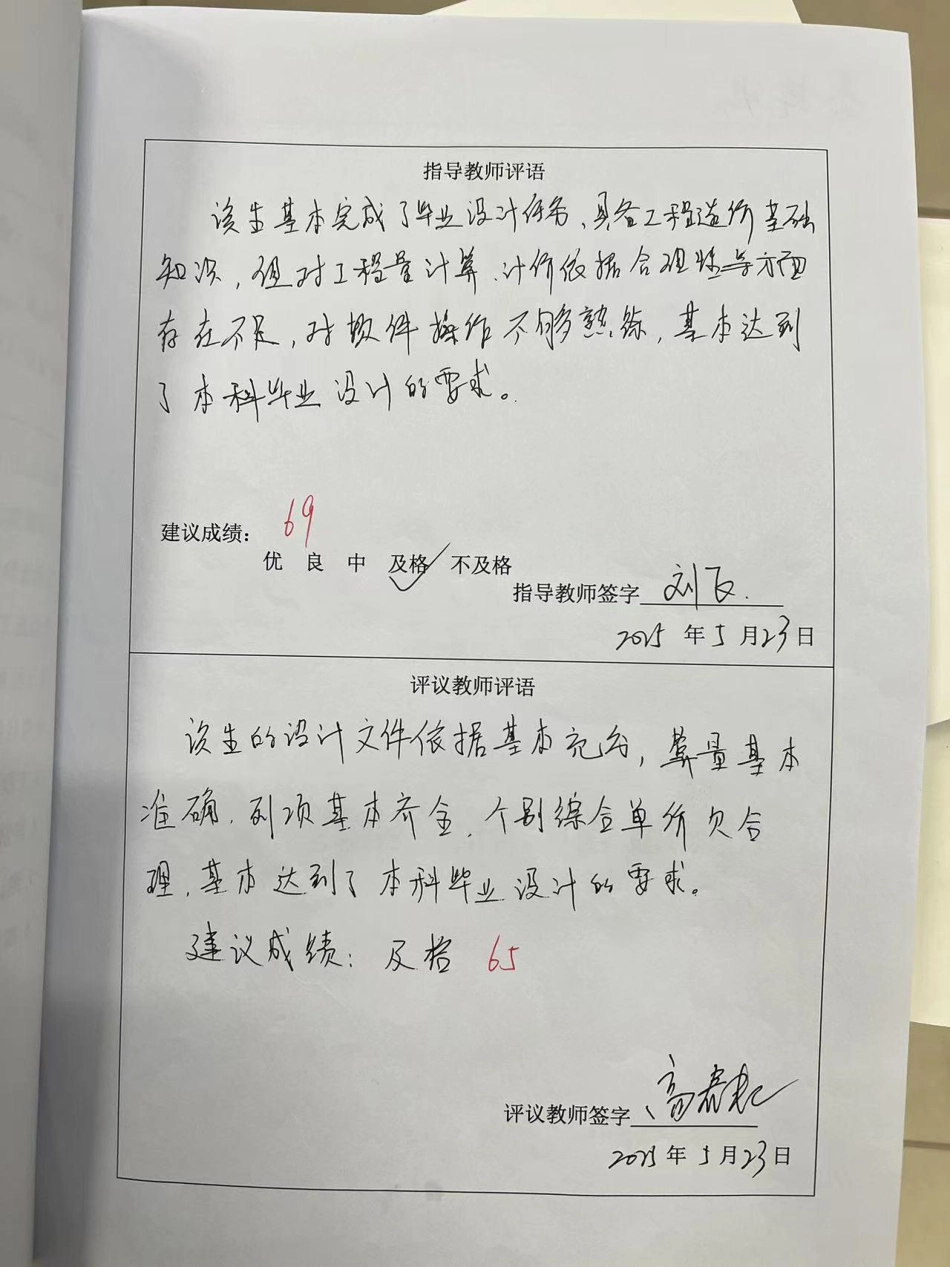 指导教师评语
该生基本完成了毕业设计任务、具备工程造价基础
知识，但对工程量计算、计价依据合理性等方面
存在不足，对软件操作不够熟练，基本达到
了本科毕业设计的要求。
建议成绩： 69
优 良 中 及格 不及格
指导教师签字 刘飞
2025 年 5 月 23 日
评议教师评语
该生的设计文件依据基本充分，算量基本
准确，列项基本齐全，个别综合单价欠合
理，基本达到了本科毕业设计的要求。
建议成绩：及格 65
评议教师签字 高春
2025 年 5 月 23 日